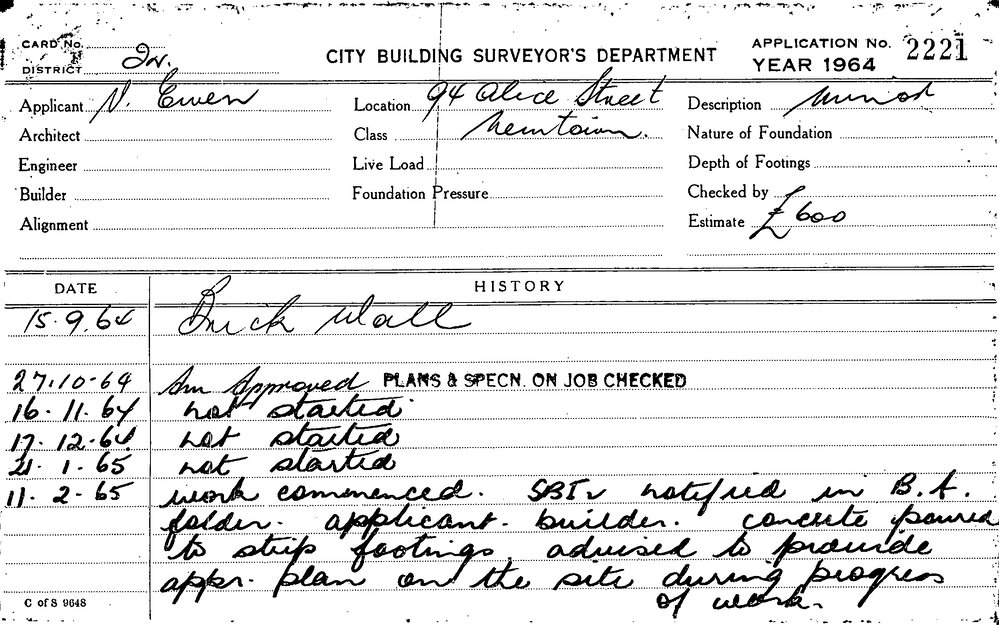 CARD No.
DISTRICT
CITY BUILDING SURVEYOR'S DEPARTMENT
APPLICATION No. 2221
YEAR 1964
Applicant N. Ewen
Location 94 Alice Street
Description minor
Architect
Class Newtown.
Nature of Foundation
Engineer
Live Load
Depth of Footings
Builder
Foundation Pressure
Checked by
Alignment
Estimate £600
DATE
HISTORY
15.9.64 Brick Wall
27.10-64 Approved PLANS & SPECN. ON JOB CHECKED
16.11.64 not started
17.12.64 not started
21.1.65 not started
11.2-65 work commenced. notified in B.A.
folder. applicant - builder. concrete poured
to strip footings. advised to provide
appr. plan on the site during progress
of work.
C of S 9648